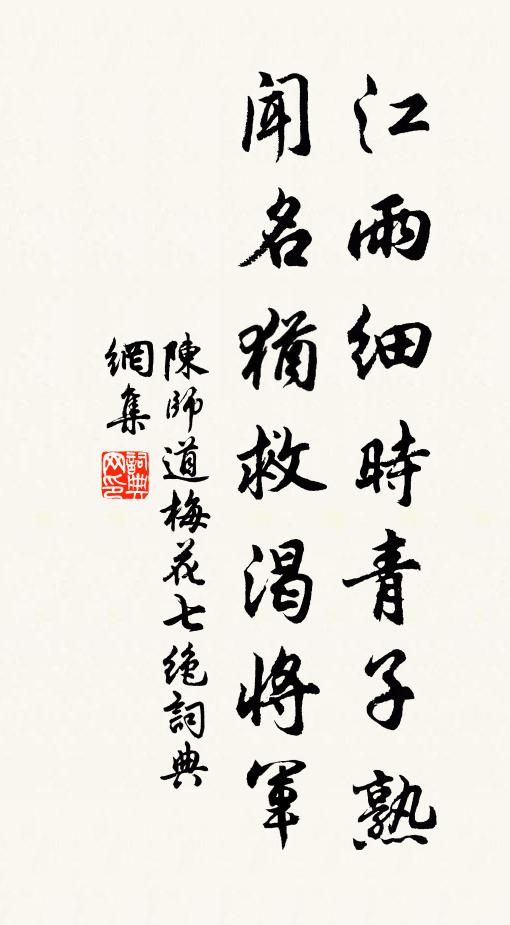 江雨細時青子熟
聞名猶救渴將軍
陳師道梅花七绝詞典
網集
詞典網印